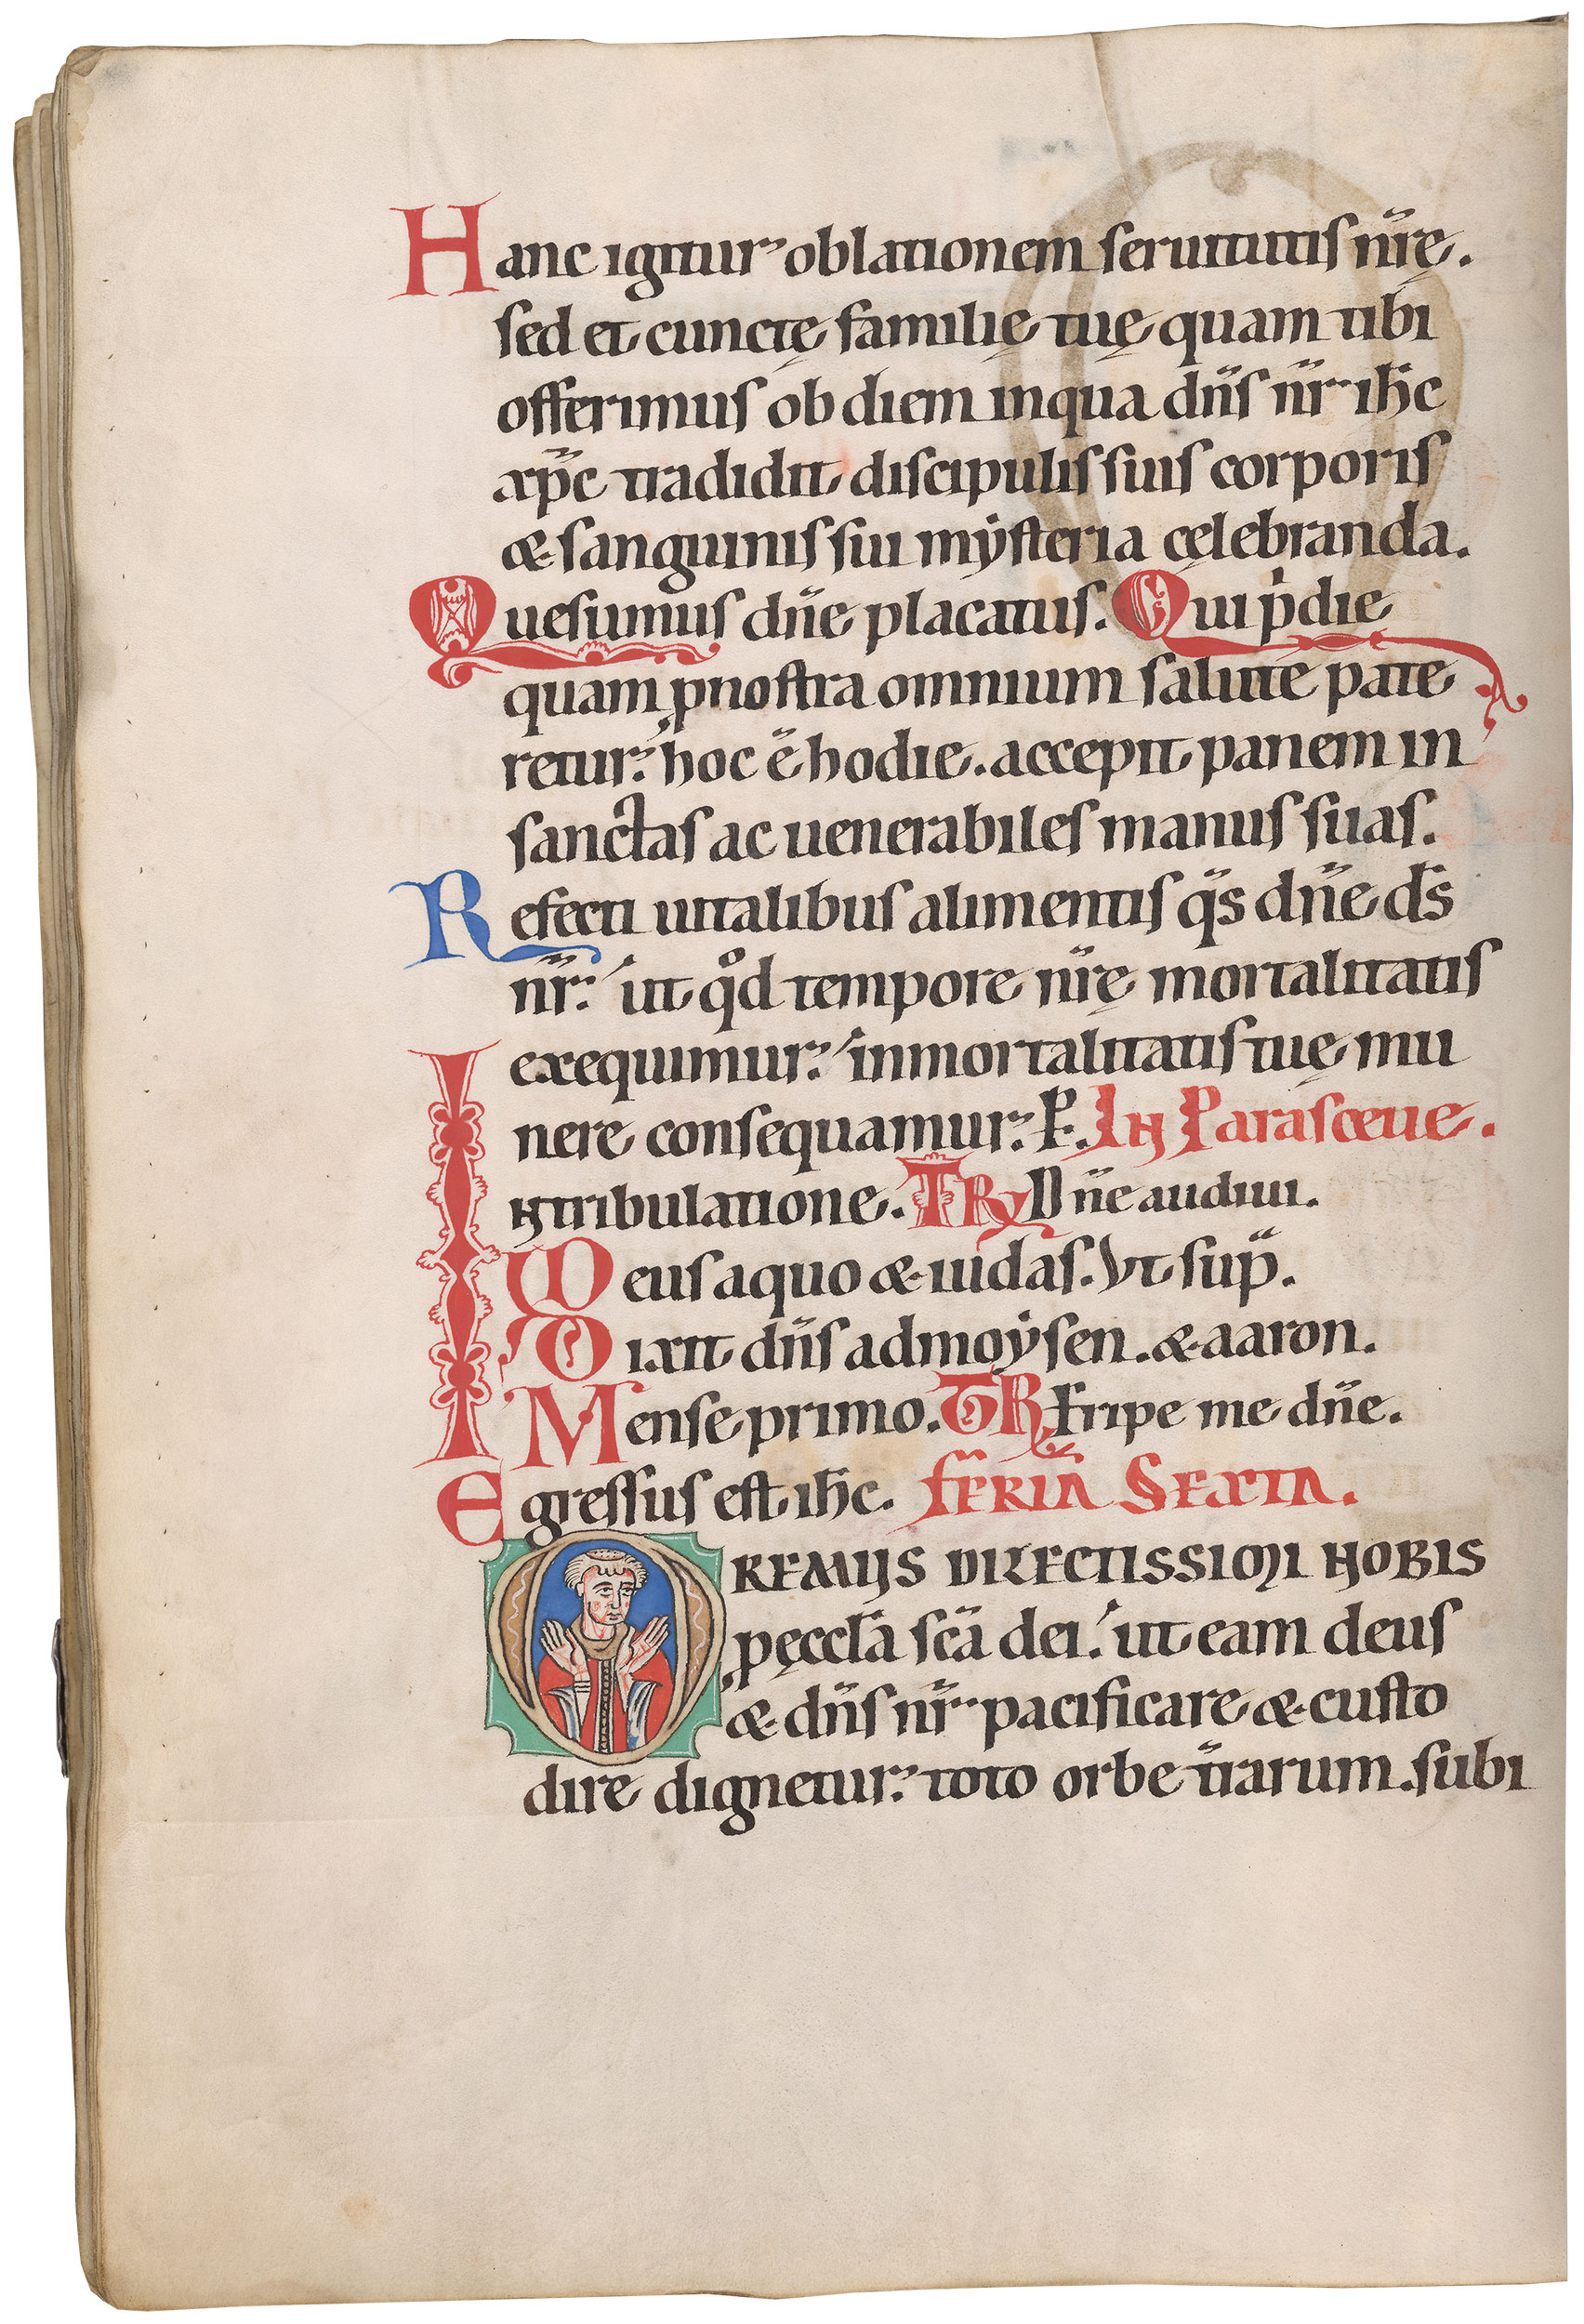 Hanc igitur oblationem seruitutis nr̄ę.
sed et cunctę familię tuę quam tibi
offerimus ob diem in qua dn̄s nr̄ ih̄c
xp̄c tradidit discipulis suis corporis
& sanguinis sui mẏsteria cęlebranda.
Quesumus dn̄e placatus. Qui p̍die
quam ꝓ nostra omnium salute pate
retur. hoc ē hodie. accepit panem in
sanctas ac uenerabiles manus suas.
Refecti uitalibus alimentis q̄s dn̄e ds̄
nr̄. ut qͦd tempore nr̄ę mortalitatis
exequimur. inmortalitatis tuę mu
nere consequamur. P. In Parasceue.
In tribulatione. TR Dn̄e audiui.
Deus a quo & iudas. Vt sup̄.
Dixit dn̄s ad moẏsen. & aaron.
Mense primo. TR Eripe me dn̄e.
Egressus est ih̄c. FERIA SEXTA.
OREMUS DILECTISSIMI NOBIS
ꝓ ęccl̄a sc̄a dei. ut eam deus
& dn̄s nr̄ pacificare & custo
dire dignetur. toto orbe t̄rarum. subi